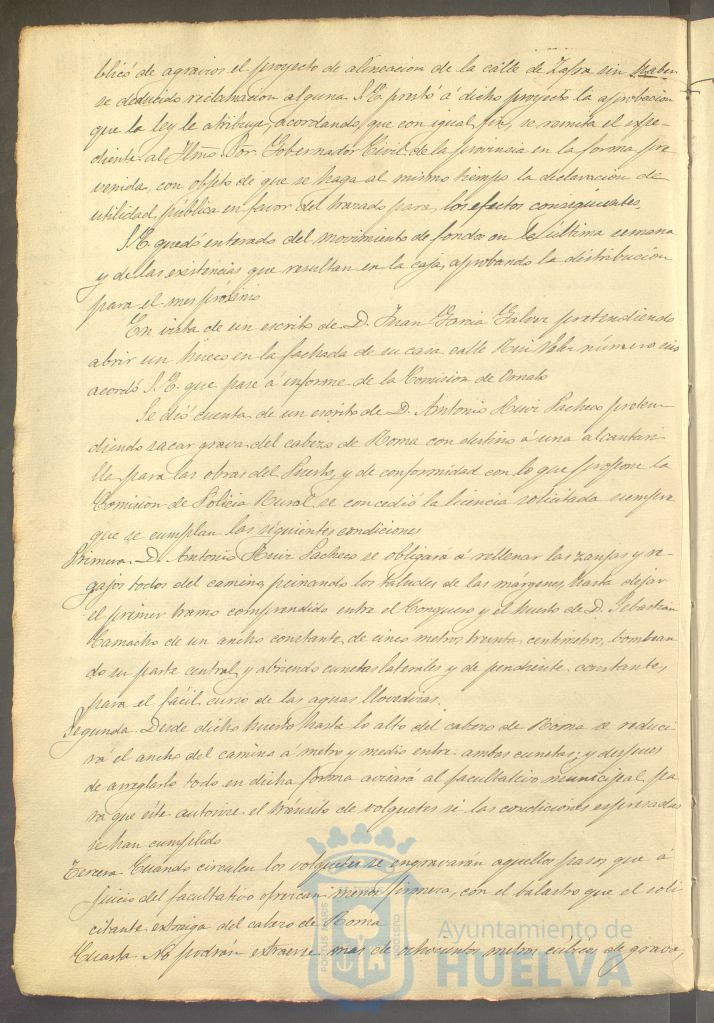 blicó de agravios el proyecto de alineacion de la calle de Zafra sin haber
se deducido reclamacion alguna. S.E. prestó á dicho proyecto la aprobacion
que la ley le atribuye, acordando, que con igual fin, se remita el expe-
diente al Iltmo Sor. Gobernador Civil de la provincia en la forma pre
venida, con objeto de que se haga al mismo tiempo la declaracion de
utilidad pública en favor del trazado para los efectos consiguientes.
S.E. quedó enterado del movimiento de fondos en la última semana
y de las existencias que resultan en la caja, aprobando la distribucion
para el mes próximo
En vista de un escrito de D. Juan Garcia Galvez pretendiendo
abrir un hueco en la fachada de su casa calle Rui Velez número seis
acordó S.E. que pase á informe de la Comision de Ornato
Se dió cuenta de un escrito de D. Antonio Ruiz Pacheco preten-
diendo sacar grava del cabezo de Roma con destino á una alcantari
lla para las obras del Puerto, y de conformidad con lo que propone la
Comision de Policia Rural se concedió la licencia solicitada siempre
que se cumplan las siguientes condiciones
Primera. D. Antonio Ruiz Pacheco se obligará á rellenar las zanjas y re-
gajos todos del camino, peinando los taludes de las margenes, hasta dejar
el primer tramo comprendido entre el Conquero y el huerto de D. Sebastian
Camacho de un ancho constante de cinco metros treinta centimetros, bombean
do su parte central y abriendo cunetas laterales y de pendiente constante,
para el fácil curso de las aguas llovedizas.
Segunda. Desde dicho huerto hasta lo alto del cabezo de Roma se reduci
rá el ancho del camino á metro y medio entre ambas cunetas; y despues
de arreglarlo todo en dicha forma avisará al facultativo municipal pa
ra que éste autorice el tránsito de volquetes si las condiciones expresadas
se han cumplido
Tercera Cuando circulen los volquetes se engravarán aquellos pasos que á
juicio del facultativo ofrezcan menos firmeza, con el balastro que el soli
citante extraiga del cabezo de Roma
Cuarta No podrán extraerse mas de ochocientos metros cúbicos de grava,
PORTUS MARIS
CUSTODIA
Ayuntamiento de
HUELVA